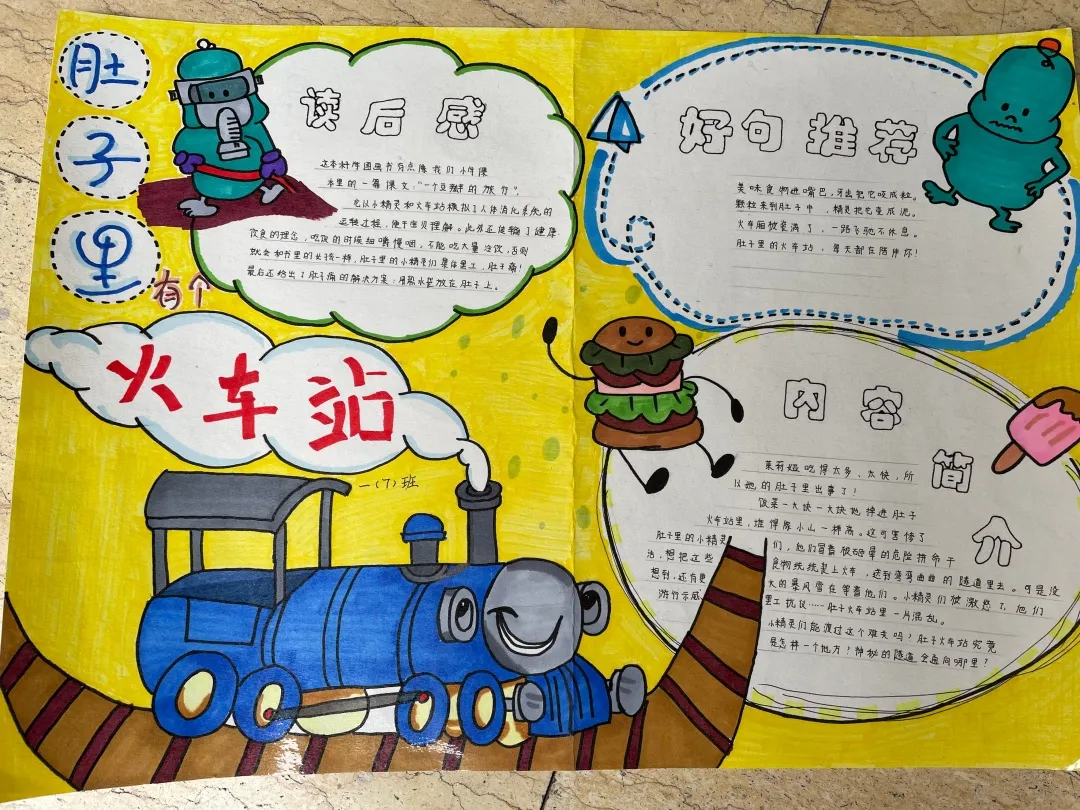 肚
子
里
有个
火车站
一(7)班
读后感
这本科学图画书有点像我们小学课
本里的一篇课文:"一个豆瓣的旅行"。
它以小精灵和火车站模拟了人体消化系统的
运转过程,便于学习理解。此外还传输了健康
饮食的理念,吃饭的时候细嚼慢咽,不能吃大量冷饮,否则
就会和书里的女孩一样,肚子里的小精灵们集体罢工,肚子痛!
最后还给出了肚子痛的解决方案:用热水袋放在肚子上。
好句推荐
美味食物进嘴巴,牙齿把它咬成粒。
颗粒来到肚子中,精灵把它变成泥。
火车厢被装满了,一路飞驰不休息。
肚子里的火车站,每天都在陪伴你!
内容简介
茱莉娅吃得太多、太快,所
以她的肚子里出事了!
饭菜一大块一大块地掉进肚子
火车站里,堆得像小山一样高。这可害惨了
肚子里的小精灵们,他们冒着被砸晕的危险拼命干
活,想把这些食物统统装上火车,送到弯弯曲曲的隧道里去。可是没
想到,还有更大的暴风雪在等着他们。小精灵们被激怒了,他们
游行示威罢工抗议……肚子火车站里一片混乱。
小精灵们能渡过这个难关吗?肚子火车站究竟
是怎样一个地方?神秘的隧道会通向哪里?